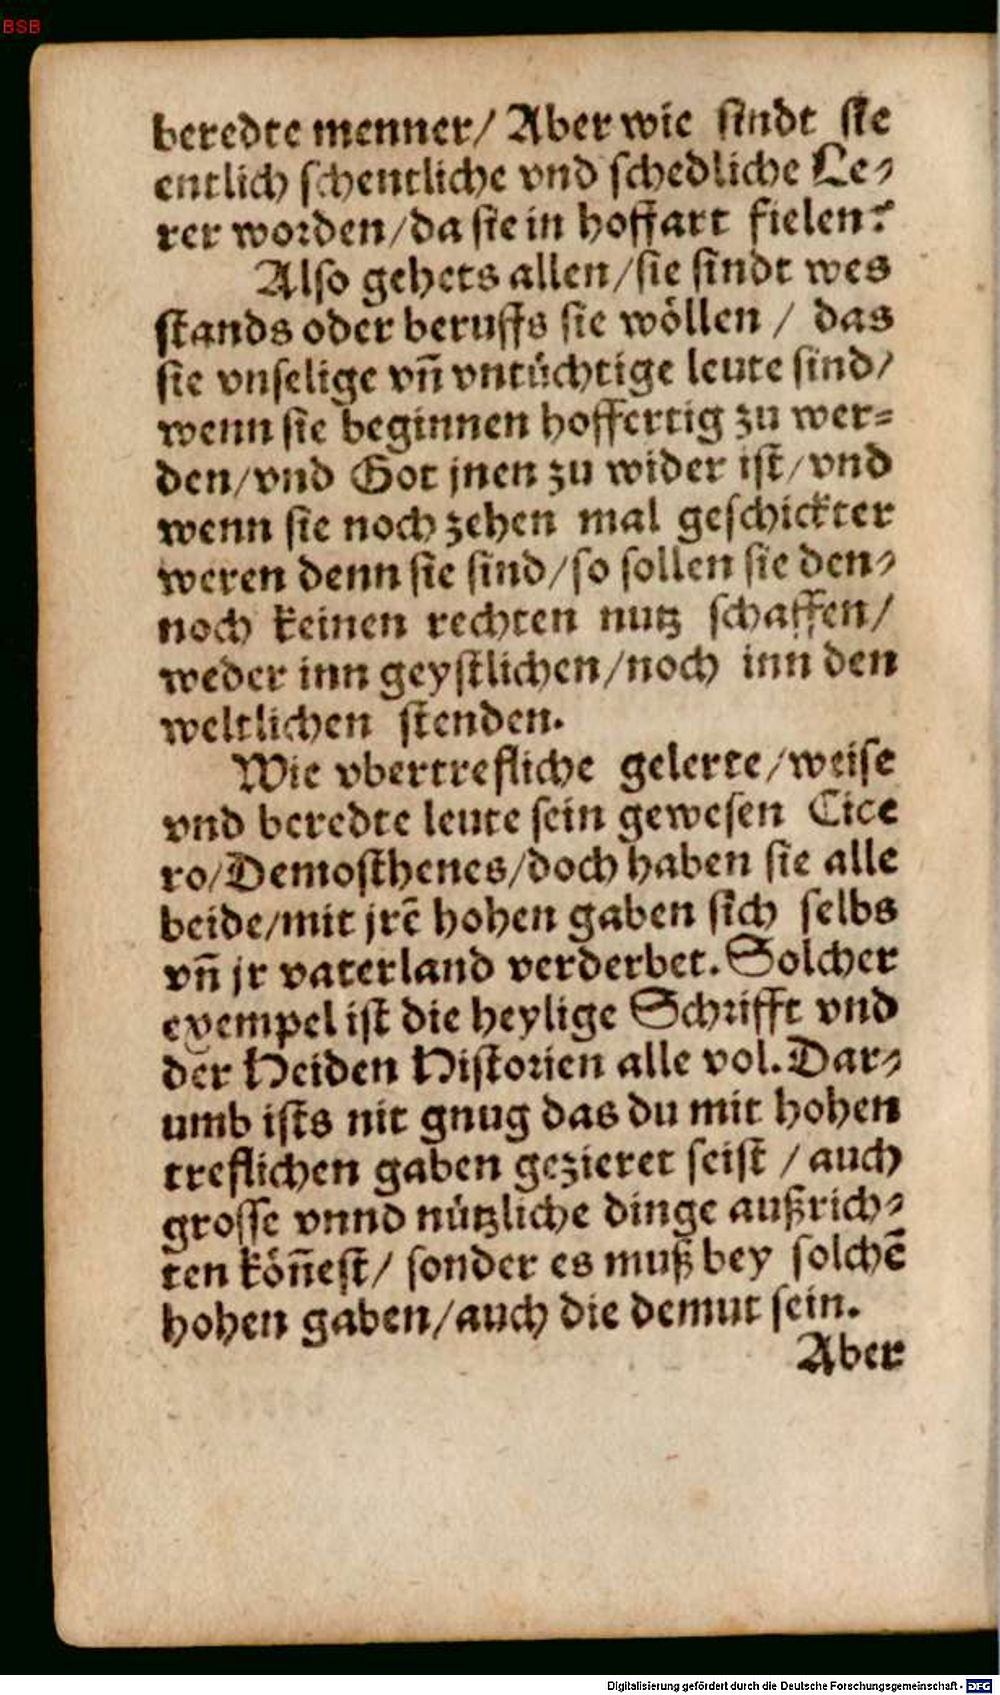 BSB
beredte menner/ Aber wie sindt sie
entlich schentliche vnd schedliche Le⸗
rer worden/da sie in hoffart fielen?
Also gehets allen/sie sindt wes
stands oder beruffs sie wöllen / das
sie vnselige vñ vntüchtige leute sind/
wenn sie beginnen hoffertig zu wer⸗
den/vnd Got jnen zu wider ist/vnd
wenn sie noch zehen mal geschickter
weren denn sie sind/so sollen sie den⸗
noch keinen rechten nutz schaffen/
weder inn geystlichen/noch inn den
weltlichen stenden.
Wie vbertrefliche gelerte/weise
vnd beredte leute sein gewesen Cice
ro/Demosthenes/doch haben sie alle
beide/mit jrẽ hohen gaben sich selbs
vñ jr vaterland verderbet. Solcher
exempel ist die heylige Schrifft vnd
der Heiden Historien alle vol. Dar⸗
umb ists nit gnug das du mit hohen
treflichen gaben gezieret seist / auch
grosse vnnd nützliche dinge außrich⸗
ten köñest/ sonder es muß bey solchẽ
hohen gaben/auch die demut sein.
Aber
Digitalisierung gefördert durch die Deutsche Forschungsgemeinschaft - DFG